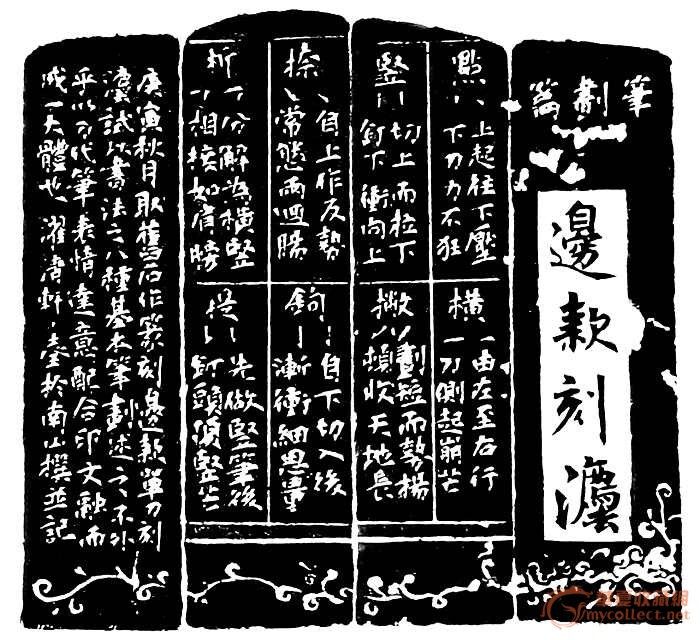 筆劃篇
邊款刻灋
點
上起往下壓
下刀力不狂
豎
切上而拉下
釘下衝向上
橫
一由左至右行
一刀側起崩芒
撇
劃短而勢揚
頓收天地長
捺
自上作反勢
常態兩迴腸
折
分解為橫豎
相接如肩膀
鉤
自下切入後
漸衝細思量
提
先做豎筆後
釘頭傾豎芒
庚寅秋月取舊石作篆刻邊款單刀刻
灋試以書法之八種基本筆劃述之不外
乎以刀代筆表情達意配合印文融而
成一大體也濯濤軒於南山撰並記
華夏收藏網
mycollect.net